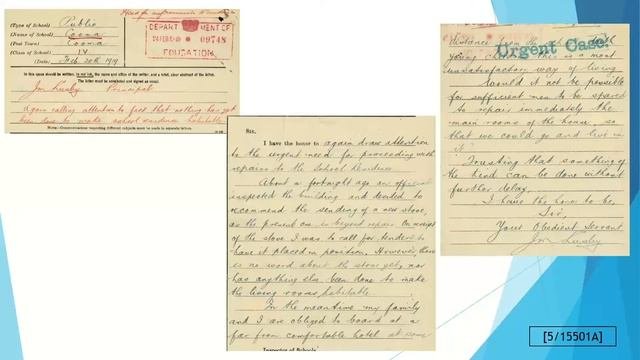 Need for improvements
(Type of School) Public
(Name of School) Cooma
(Post Town) Cooma
(Class of School)
(Date) Feb. 20th 1919
DEPARTMENT OF
09748
EDUCATION
In this case should be written, in red ink, the name and office of the writer, and a brief abstract of the letter.
The letter must be enveloped and signed as usual.
Jon Lusby Principal
again calling attention to fact that nothing has yet
been done to make school residence habitable
NOTE.—Communications regarding different subjects must be made in separate letters.
SIR,
I have the honor to again draw attention
to the urgent need for proceeding with
repairs to the School Residence
About a fortnight ago an officer
inspected the building and decided to
recommend the sending of a new stove,
as the present one is beyond repair. On receipt
of the stove I was to call for tenders to
have it placed in position. However, there
is no word about the stove yet, nor
has anything else been done to make
the living rooms habitable.
In the meantime my family
and I are obliged to board at a
far from comfortable hotel at some
Inspector of Schools
distance from the school
Urgent Case.
young children this is a most
unsatisfactory way of living
Would it not be possible
for sufficient men to be spared
to repair immediately the
main rooms of the house, so
that we could go and live in
it?
Trusting that something of
the kind can be done without
further delay,
I have the honor to be,
Sir,
Your Obedient Servant
Jon Lusby
[5/15501A]